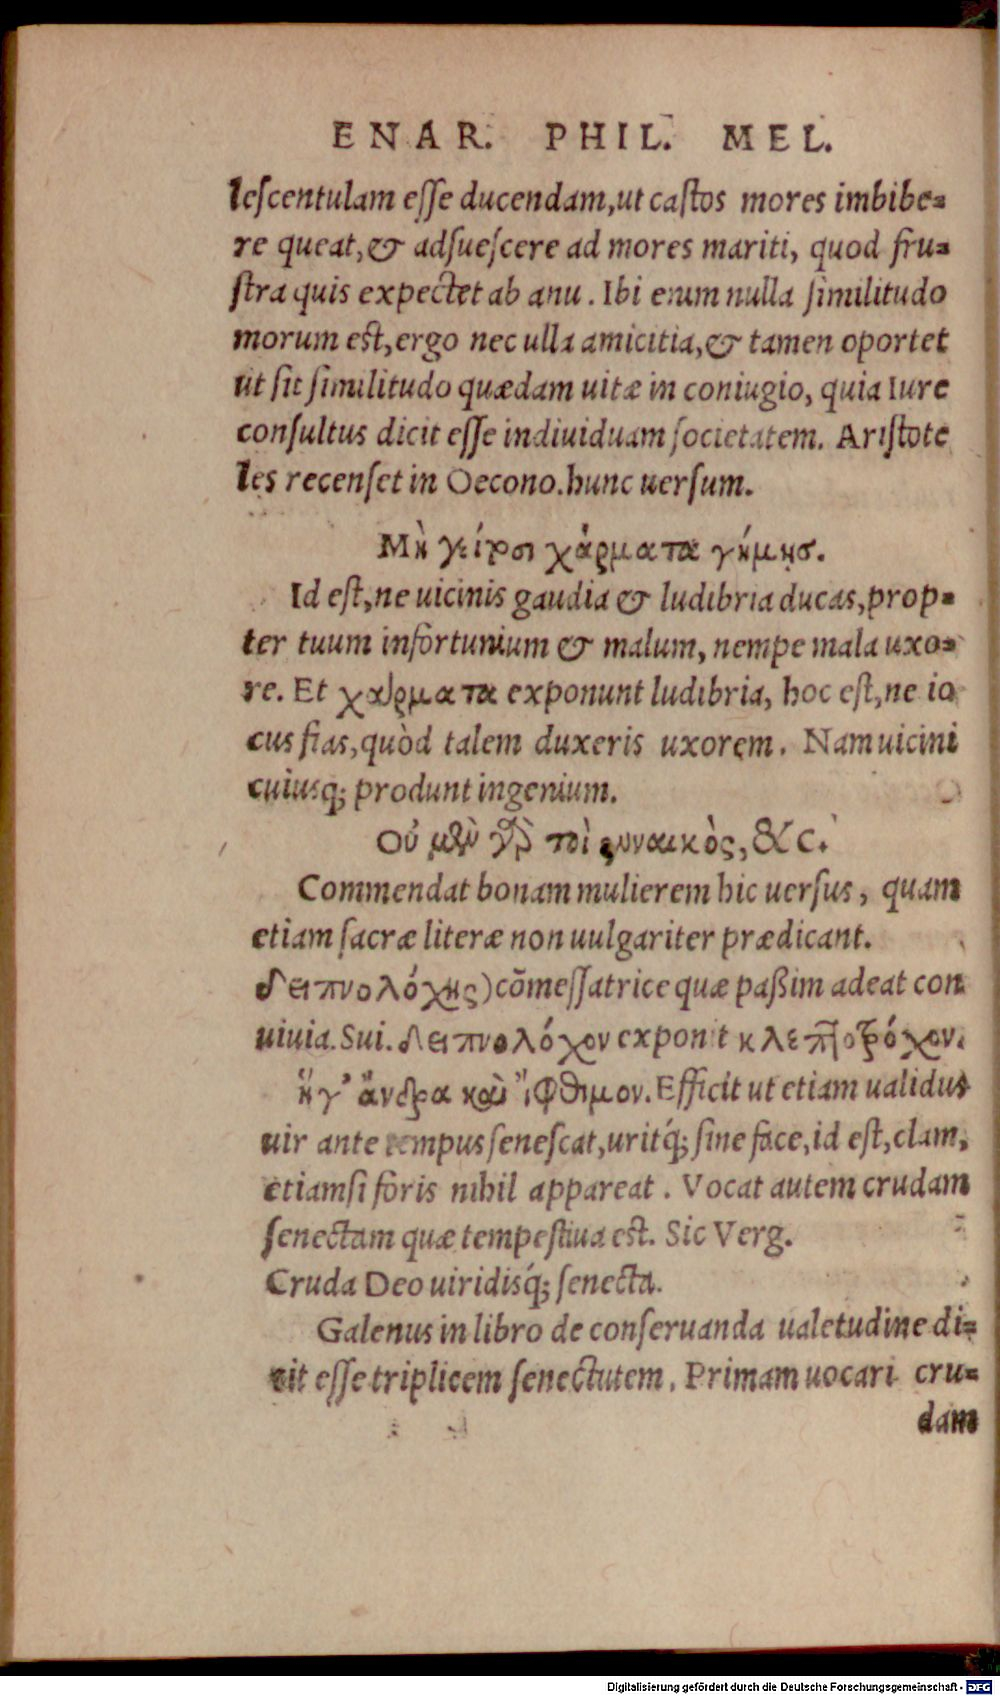 ENAR. PHIL. MEL.
lescentulam esse ducendam, ut castos mores imbibe=
re queat, & adsuescere ad mores mariti, quod fru=
stra quis expectet ab anu. Ibi enim nulla similitudo
morum est, ergo nec ulla amicitia, & tamen oportet
ut sit similitudo quædam uitæ in coniugio, quia Iure
consultus dicit esse indiuiduam societatem. Aristote
les recenset in Oecono. hunc uersum.
Μὴ γείτοσι χάρματα γήμῃσ.
Id est, ne uicinis gaudia & ludibria ducas, prop=
ter tuum infortunium & malum, nempe mala uxo=
re. Et χάρματα exponunt ludibria, hoc est, ne io
cus fias, quòd talem duxeris uxorem. Nam uicini
cuiusq; produnt ingenium.
Οὐ μὲν γὰρ τοὶ γυναικὸς, &c.
Commendat bonam mulierem hic uersus, quam
etiam sacræ literæ non uulgariter prædicant.
δειπνολόχης) cōmessatrice quæ paßim adeat con
uiuia. Sui. δειπνολόχον exponit κλεπτοτρόχον.
ἥγ' ἄνδρα καὶ ἴφθιμον. Efficit ut etiam ualidus
uir ante tempus senescat, uritq́; sine face, id est, clam,
etiamsi foris nihil appareat. Vocat autem crudam
senectam quæ tempestiua est. Sic Verg.
Cruda Deo uiridisq́; senecta.
Galenus in libro de conseruanda ualetudine di=
cit esse triplicem senectutem. Primam uocari cru=
dam
Digitalisierung gefördert durch die Deutsche Forschungsgemeinschaft - DFG